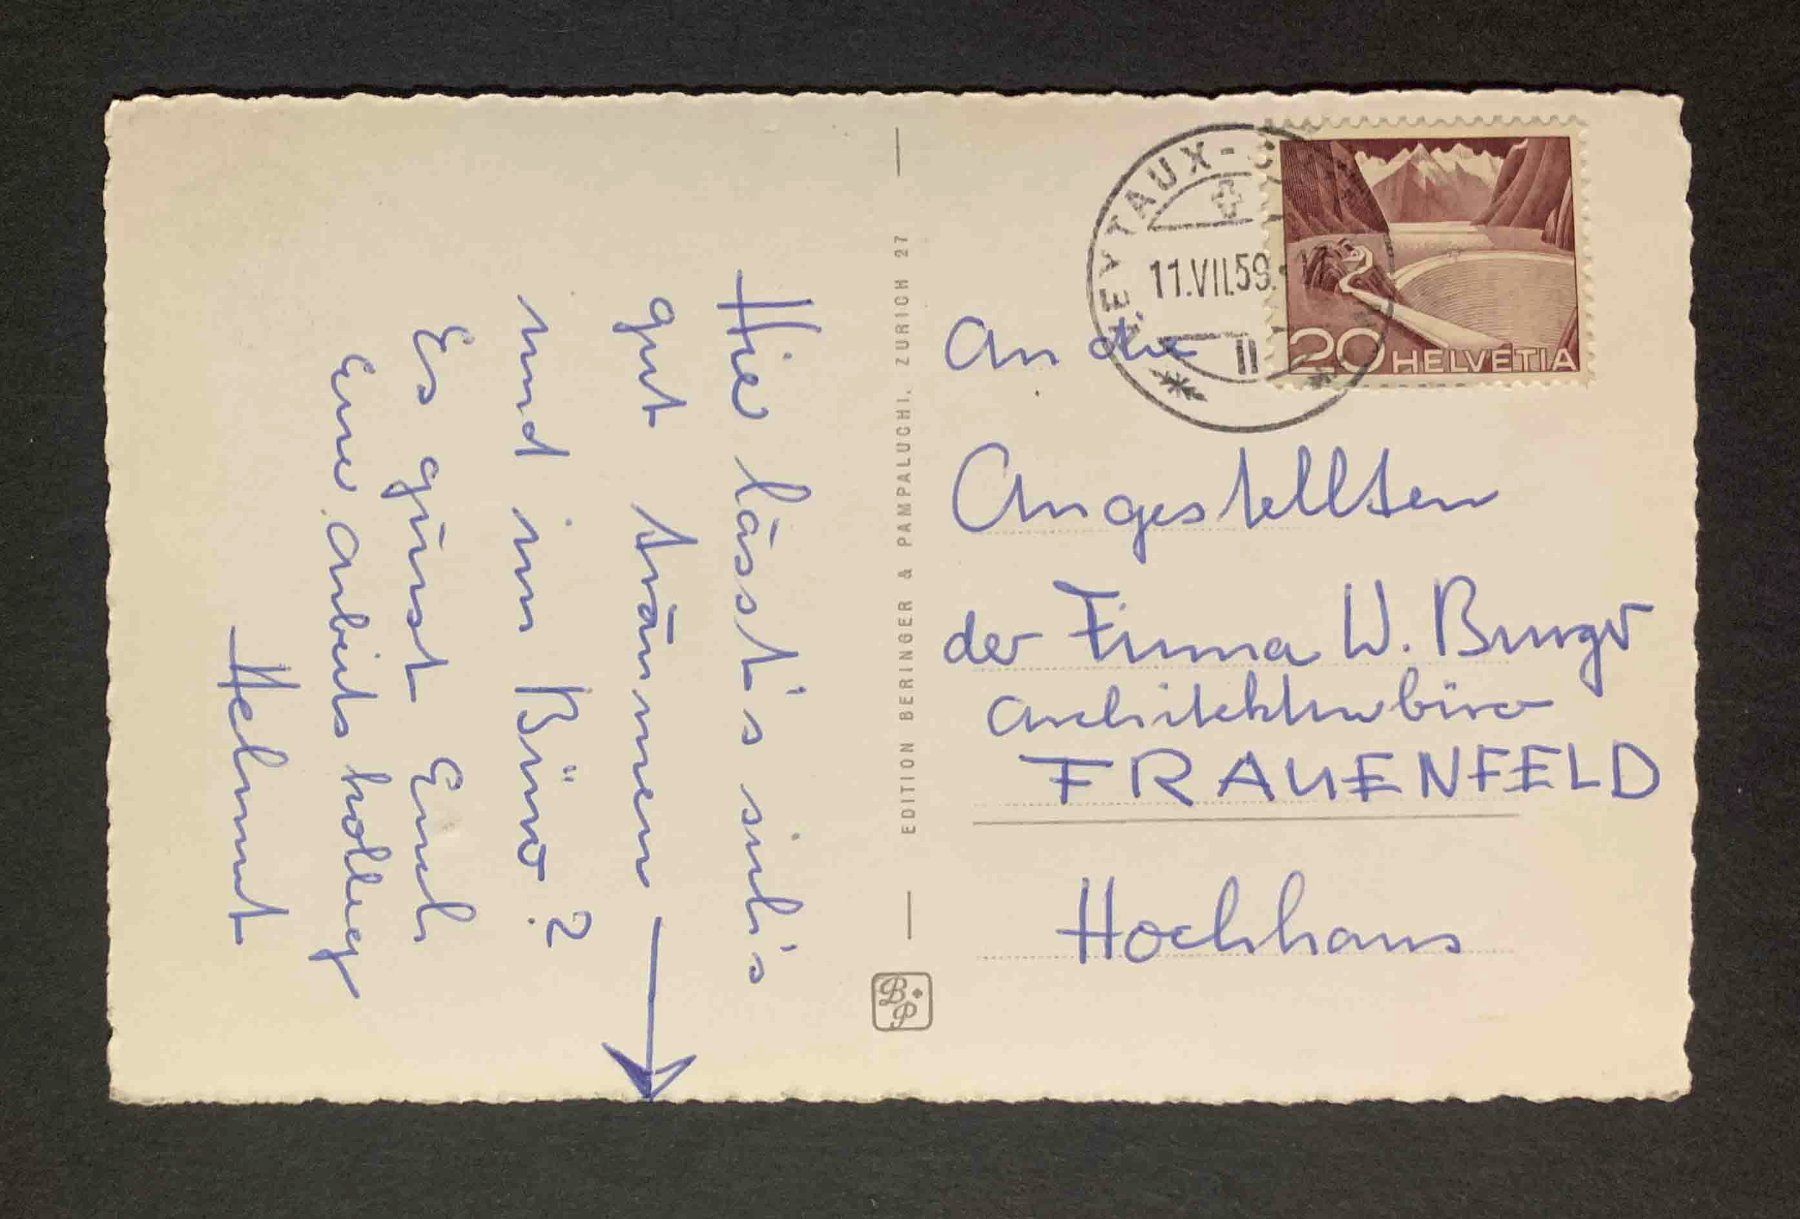 Hier lässt's sich's
gut träumen
und im Büro?
Es grüsst Euch
Euer Arbeitskolleg
Helmut
EDITION BERINGER & PAMPALUCHI, ZÜRICH 27
B.P.
VEYTAUX-
11.VII.59.
II
20 HELVETIA
An die
Angestellten
der Firma W. Burger
Architekturbüro
FRAUENFELD
Hochhaus